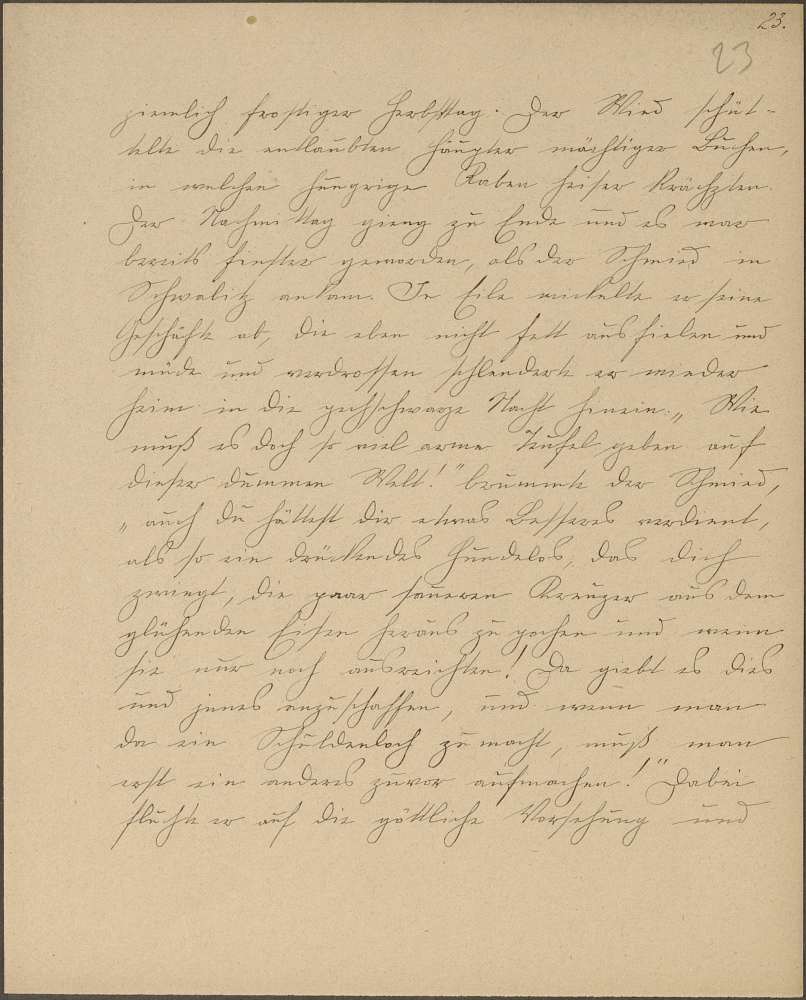 23.
23
ziemlich frostiger Herbsttag. Der Wind schüt-
telte die entlaubten Häupter mächtiger Buchen,
in welchen hungrige Raben heiser krächzten.
Der Nachmittag gieng zu Ende und es war
bereits finster geworden, als der Schmied in
Schwabitz ankam. In Eile wickelte er seine
Geschäfte ab, die eben nicht fett ausfielen und
müde und verdrossen schlenderte er wieder
heim in die pechschwarze Nacht hinein. „Wie
muß es doch so viel arme Teufel geben auf
dieser dummen Welt!" brummte der Schmied,
„auch du hättest dir etwas Besseres verdient,
als so ein drückendes Hundelos, das dich
zwingt, die paar saueren Kreuzer aus dem
glühenden Eisen heraus zu pochen und wenn
sie nur noch ausreichten! Da giebt es dies
und jenes anzuschaffen, und wenn man
da ein Schuldenloch zu macht, muß man
erst ein anderes zuvor aufmachen!" Dabei
fluchte er auf die göttliche Vorsehung und